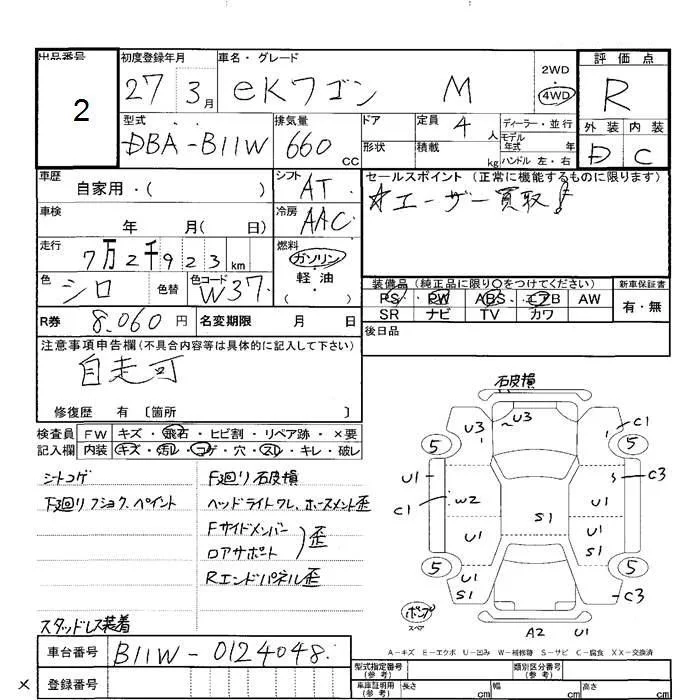 出品番号 初度登録年月 車名・グレード 2WD 評価点
2 27 3月 eKワゴン M 4WD R
型式 排気量 ドア 定員 4人 ディーラー・並行 外装 内装
DBA-B11W 660cc 形状 積載 kg モデル年式 年 D C
ハンドル 左・右
車歴 自家用・( ) シフト AT セールスポイント (正常に機能するものに限ります)
車検 年 月( 日) 冷房 AAC ☆ユーザー買取!
走行 7万2千923km 燃料 ガソリン・軽油・( )
色 シロ 色替 色コード W37 装備品 (純正品に限り○をつけてください) 新車保証書
PS PW ABS エアB AW 有・無
SR ナビ TV カワ
R券 8,060円 名変期限 月 日 後日品
注意事項申告欄(不具合内容等は具体的に記入して下さい)
自走可
修復歴 有 〔箇所 〕
検査員 FW キズ・飛石・ヒビ割・リペア跡・×要
記入欄 内装 キズ・汚レ・コゲ・穴・スレ・キレ・破レ
シートコゲ F廻り石皮損
下廻りフショク、ペイント ヘッドライトワレ、ホースメント歪
Fサイドメンバー
ロアサポート 歪
Rエンドパネル歪
スタッドレス装着
石皮損
U3 U3 C1
5 5
U1 S C3
C1 W2 S1 U1
U1 U1 S1
5 5
U1 S1 C3
ポンプ
スペア
A2 U1
A-キズ E-エクボ U-凹み W-補修跡 S-サビ C-腐食 XX-交換済
車台番号 B11W-0124048
× 登録番号
型式指定番号(参考) 類別区分番号(参考)
車庫証明用(参考) 長さ cm 幅 cm 高さ cm